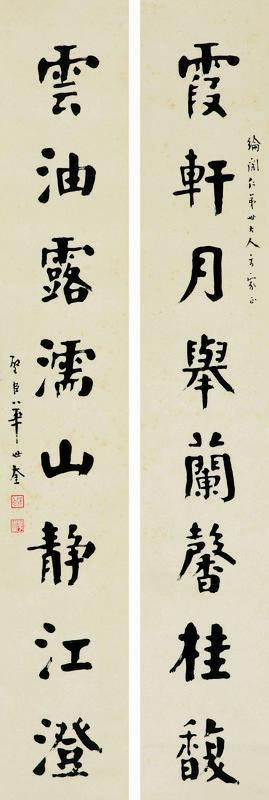 綸閣仁弟世大人方家正
霞軒月舉蘭馨桂馥
雲油露濡山静江澄
璧臣華世奎